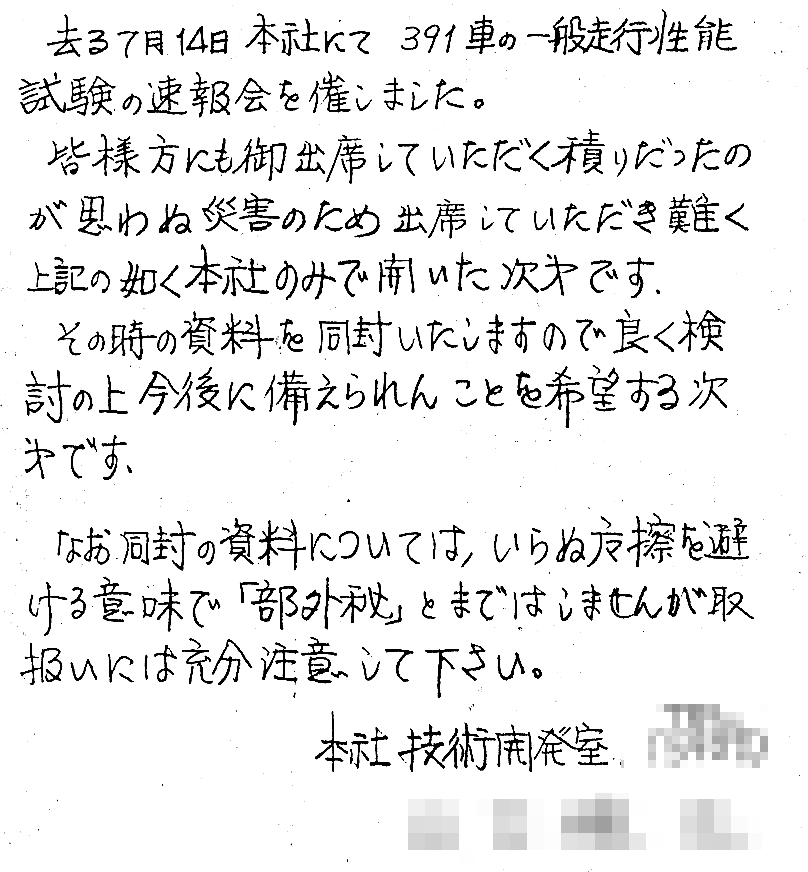 去る7月14日本社にて 391車の一般走行性能
試験の速報会を催しました。
皆様方にも御出席していただく積りだったの
が思わぬ災害のため出席していただき難く
上記の如く本社のみで開いた次才です.
その時の資料を同封いたしますので良く検
討の上今後に備えられんことを希望する次
才です、
なお同封の資料については,いらぬ摩擦を避
ける意味で「部外秘」とまではしませんが取
扱いには充分注意して下さい。
本社技術開発室.